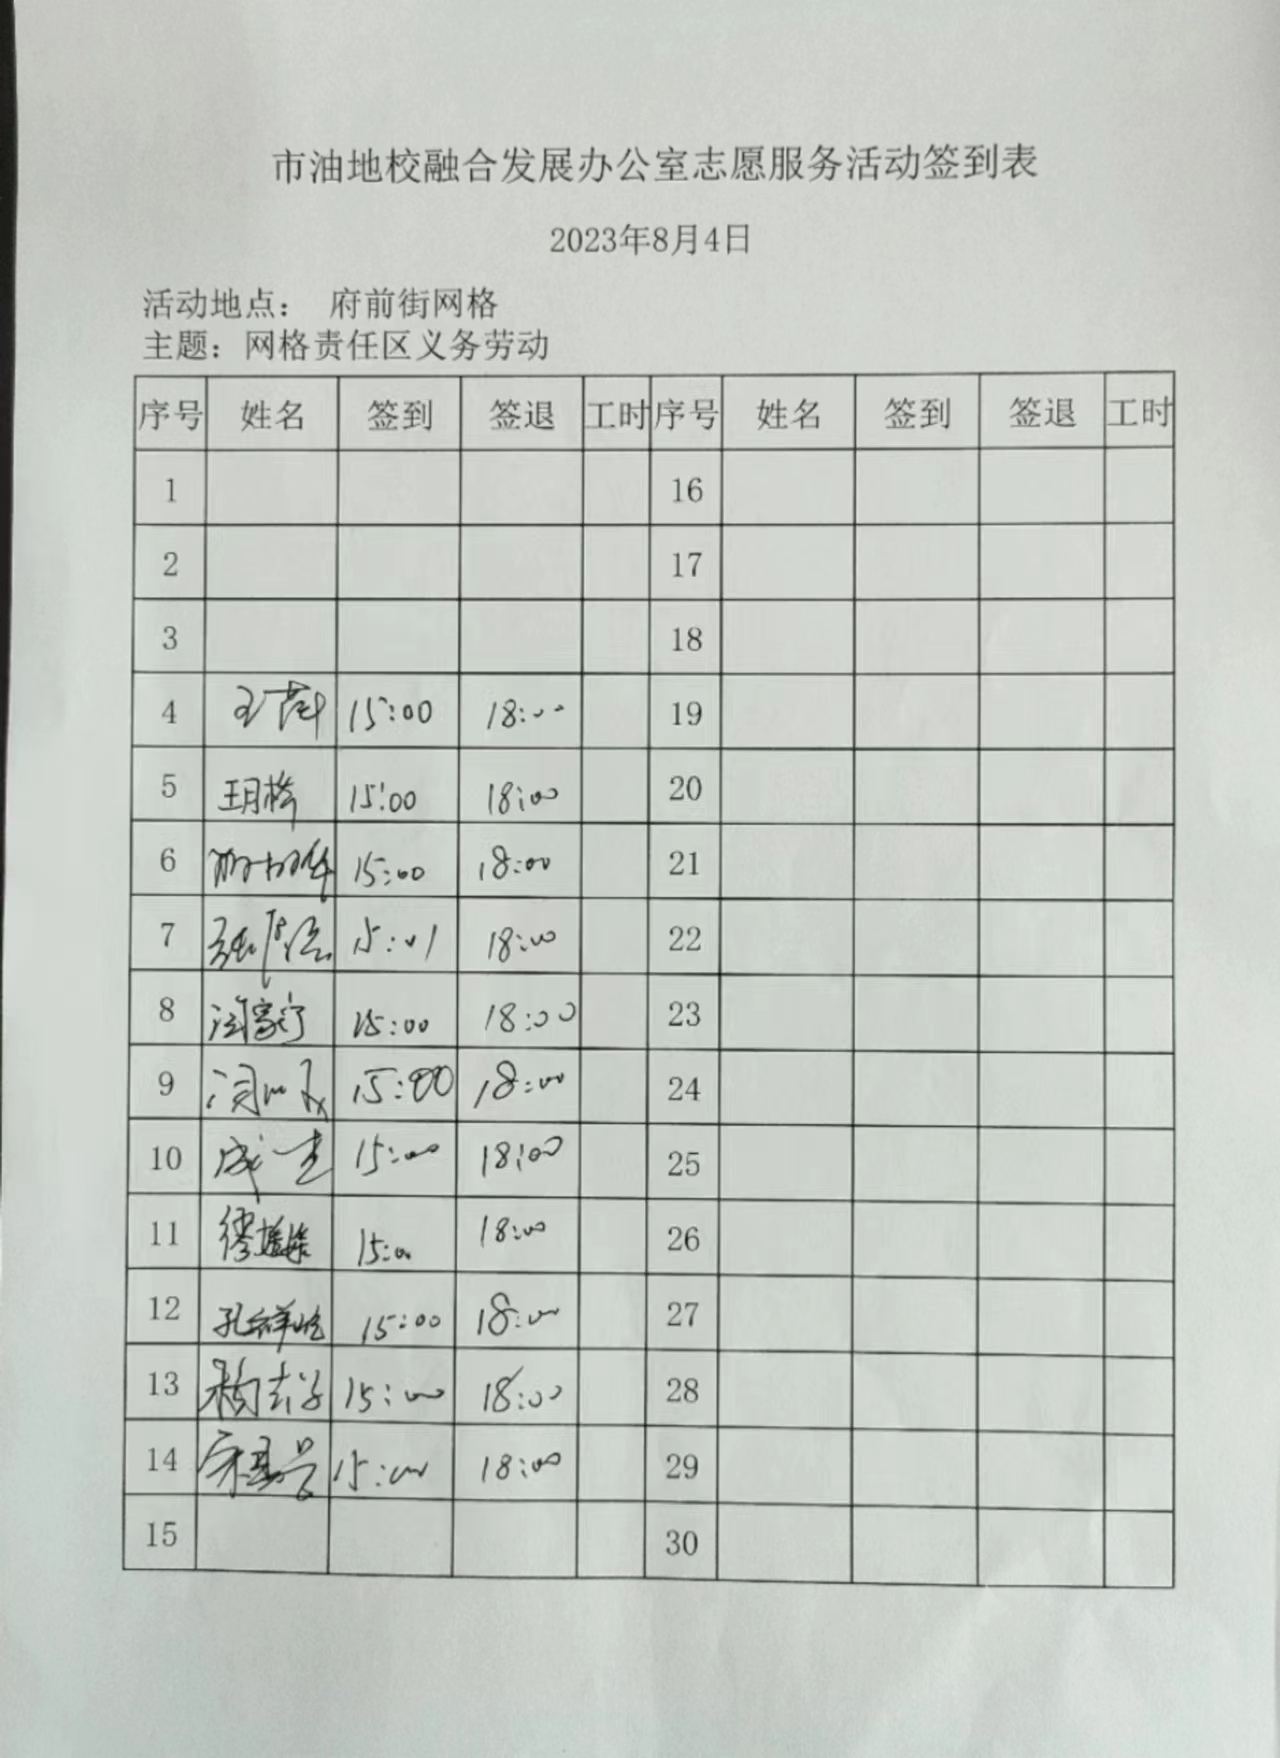 市油地校融合发展办公室志愿服务活动签到表
2023年8月4日
活动地点： 府前街网格
主题：网格责任区义务劳动
序号 姓名 签到 签退 工时 序号 姓名 签到 签退 工时
1 16
2 17
3 18
4 15:00 18:00 19
5 王月桥 15:00 18:00 20
6 15:00 18:00 21
7 15:01 18:00 22
8 15:00 18:00 23
9 15:00 18:00 24
10 15:00 18:00 25
11 15:00 18:00 26
12 15:00 18:00 27
13 15:00 18:00 28
14 15:00 18:00 29
15 30